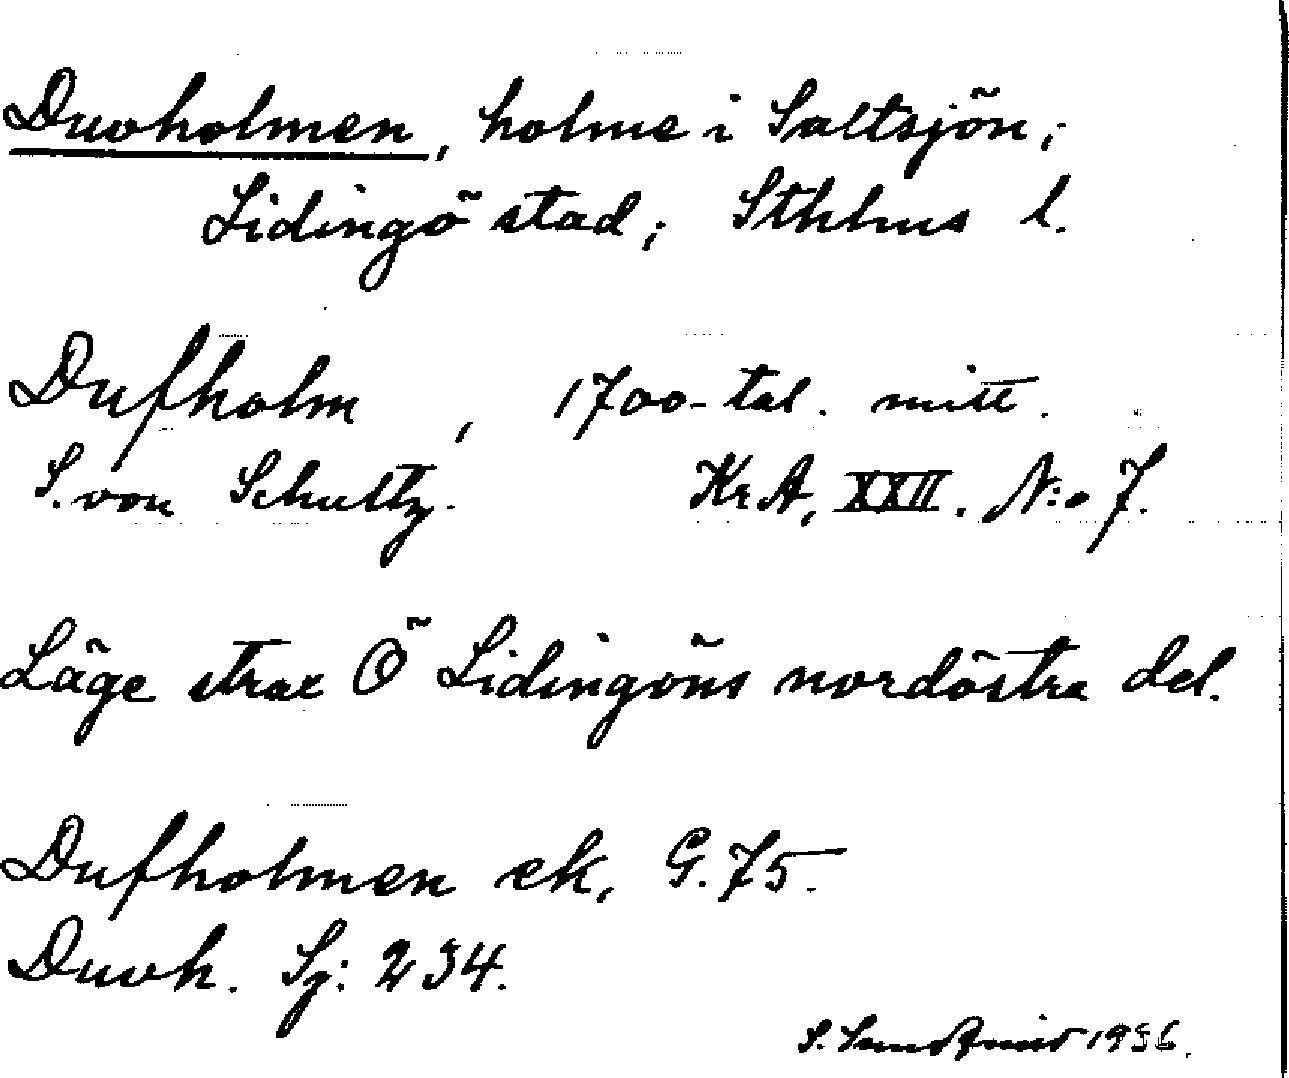 Duvholmen, holme i Saltsjön;
Lidingö stad; Sthlms l.
Dufholm, 1700-tal. mitt.
S. von Schultz. KrA, XXII. N:o 7.
Läge strax Ö Lidingöns nordöstra del.
Dufholmen ek, G.75.
Duvh. Sj: 234.
S. 1936.